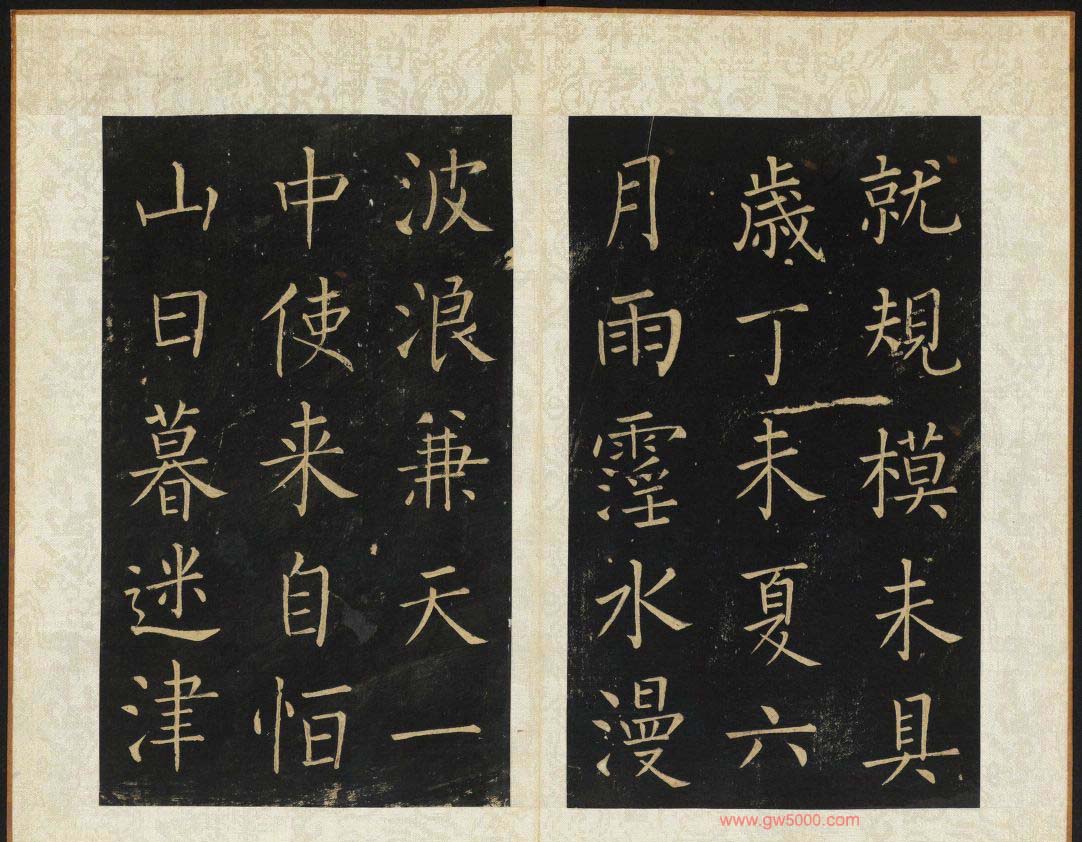 就規模未具
歳丁未夏六
月雨霪水漫
波浪兼天一
中使来自恒
山日暮迷津
www.gw5000.com